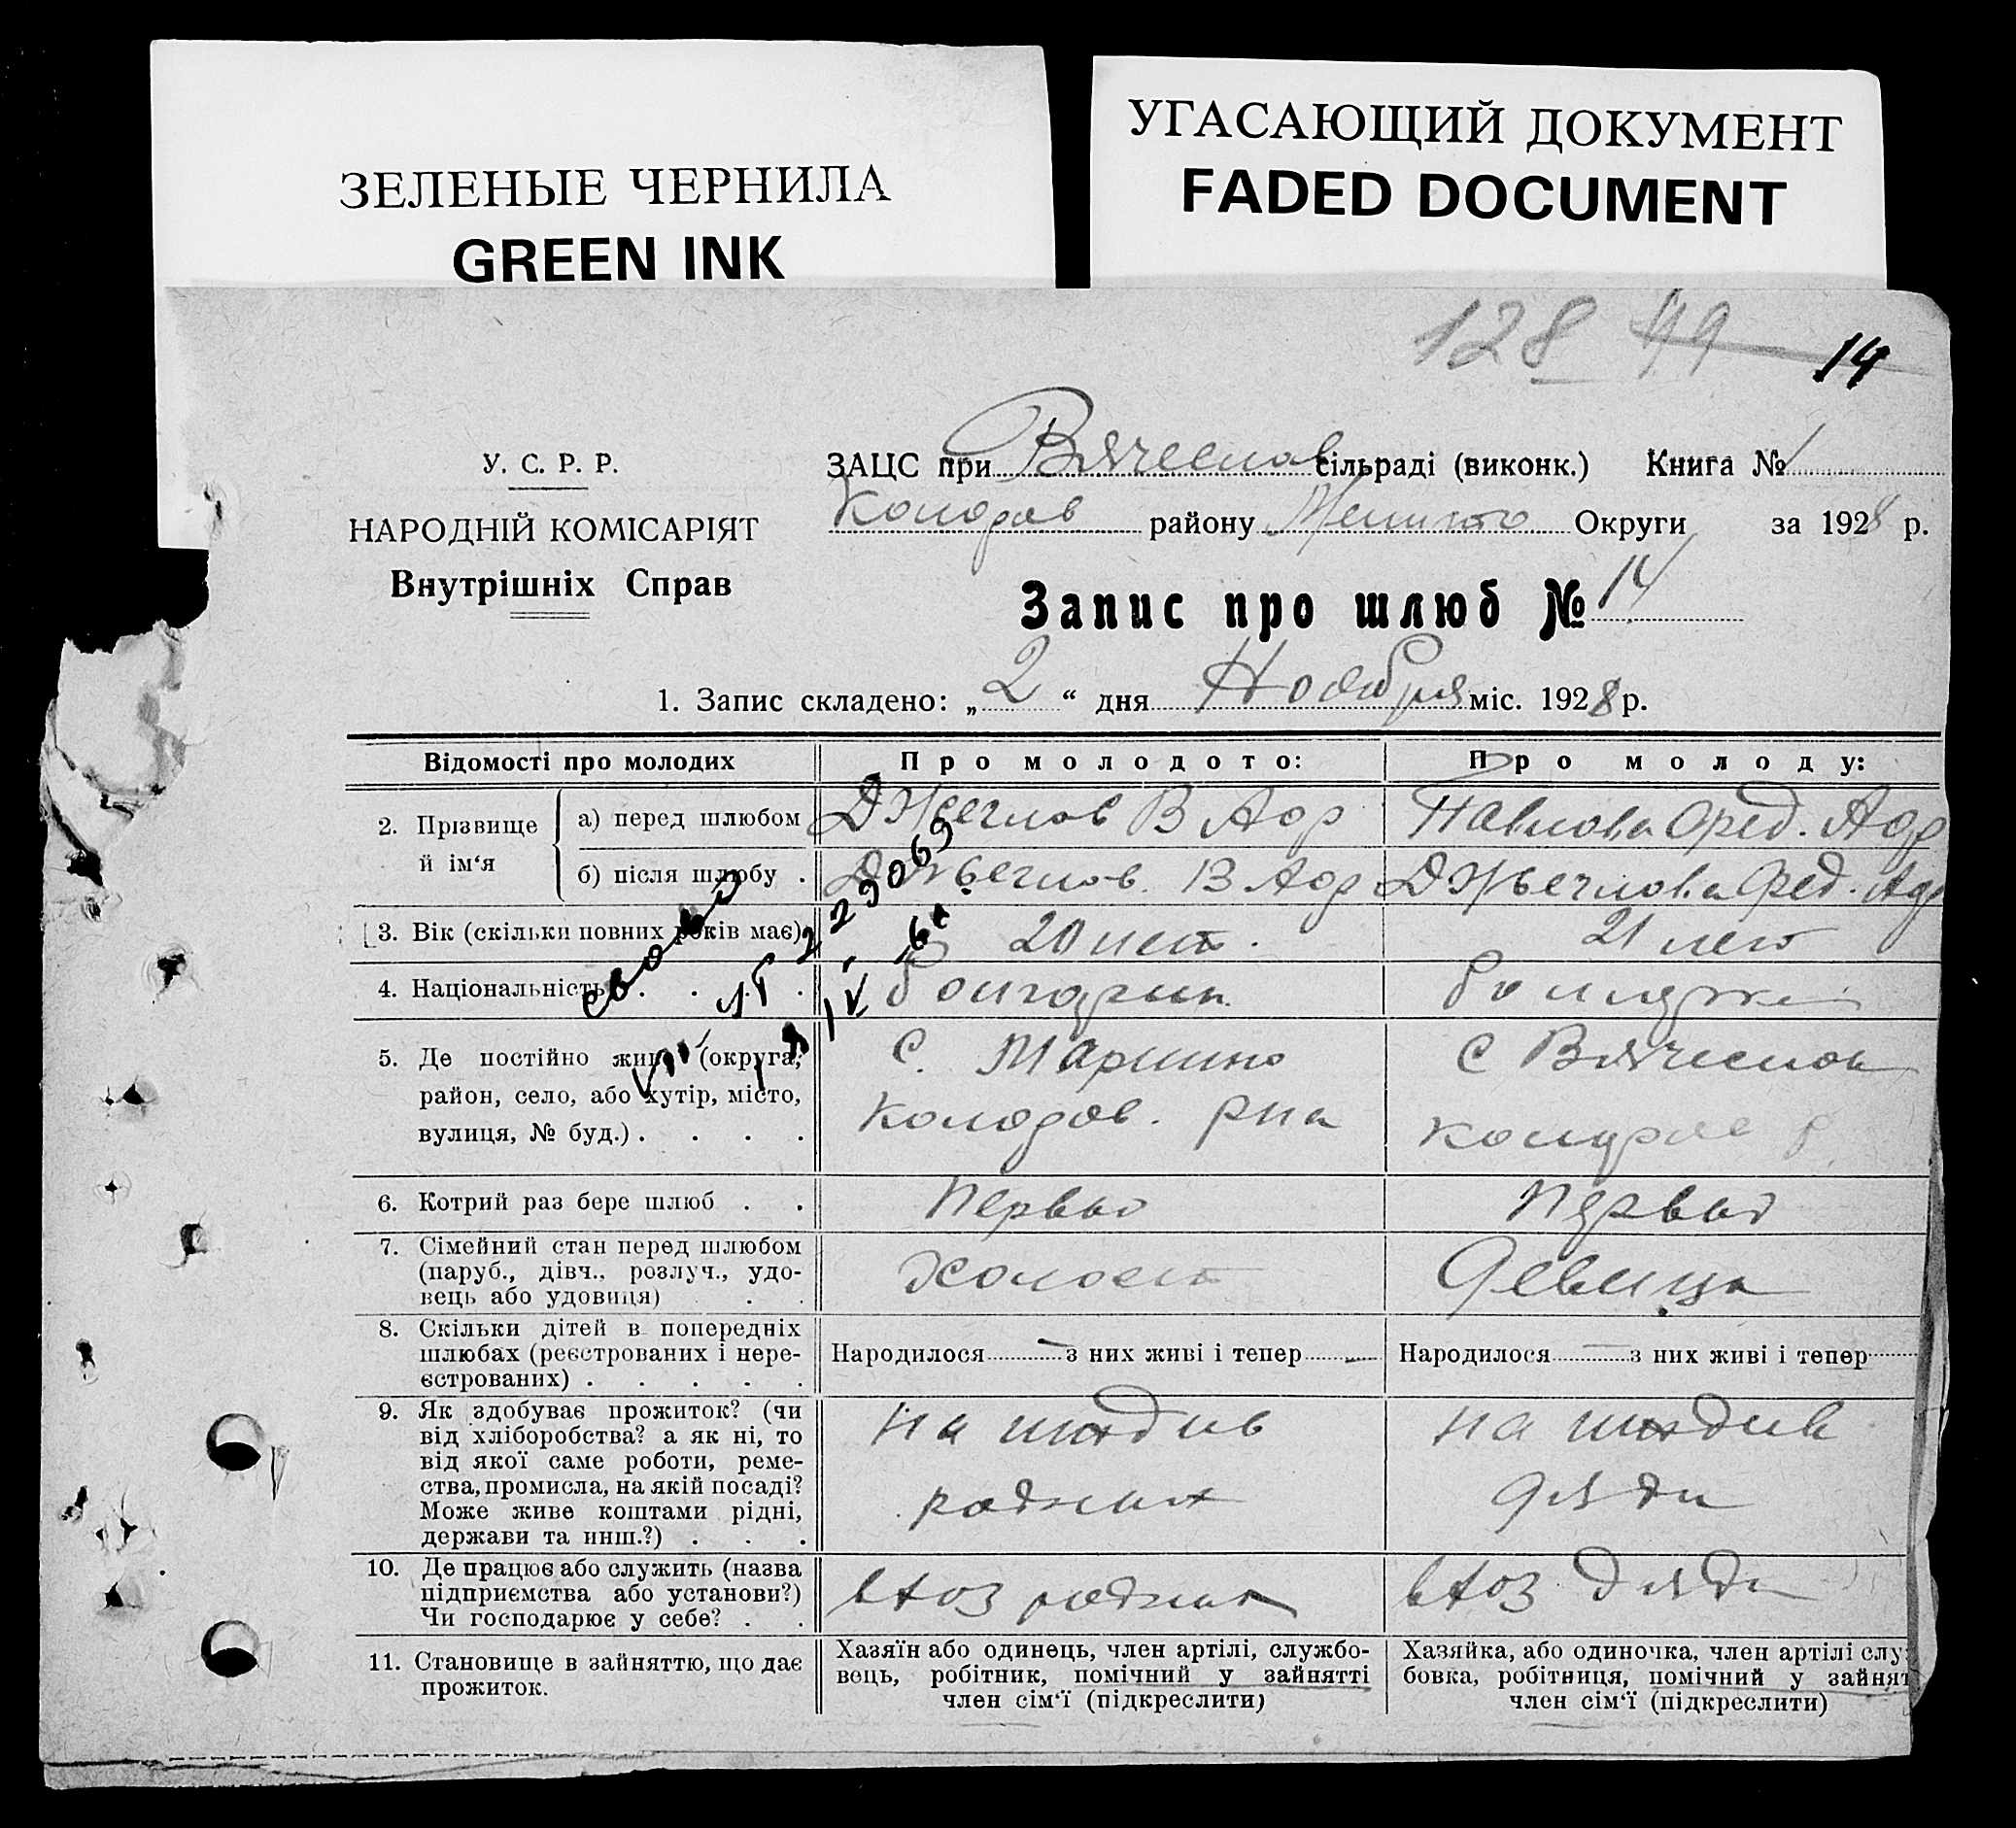 ЗЕЛЕНЫЕ ЧЕРНИЛА
GREEN INK
УГАСАЮЩИЙ ДОКУМЕНТ
FADED DOCUMENT
128 49 14
У. С. Р. Р.
НАРОДНІЙ КОМІСАРІЯТ
Внутрішніх Справ
ЗАЦС при Вячеслав сільраді (виконк.) Книга № 1
Колодав району Округи за 1928 р.
Запис про шлюб № 14
1. Запис складено: „ 2 “ дня Ноября міс. 1928 р.
Відомості про молодих
Про молодого:
Про молоду:
2. Прізвище й ім‘я
а) перед шлюбом
Джеглов В Аор
Павлова Фед. Аор
б) після шлюбу .
Джьеглов. В Аор
Джьеглова Фед. Аор
3. Вік (скільки повних років має)
20 лет.
21 лет
4. Національність . . . .
болгарин
5. Де постійно живе (округа,
район, село, або хутір, місто,
вулиця, № буд.) . . . .
с. Марино
Колодав. рна
с Вячеслов
6. Котрий раз бере шлюб . .
Первый
Первый
7. Сімейний стан перед шлюбом
(паруб., дівч., розлуч., удо-
вець або удовиця) . .
холост
девица
8. Скільки дітей в попередніх
шлюбах (реєстрованих і нере-
єстрованих) . . . . .
Народилося — з них живі і тепер —
Народилося — з них живі і тепер
9. Як здобуває прожиток? (чи
від хліборобства? а як ні, то
від якої саме роботи, реме-
ства, промисла, на якій посаді?
Може живе коштами рідні,
держави та инш.?) . . .
на иждив
родных
на иждив
дяди
10. Де працює або служить (назва
підприємства або установи?)
Чи господарює у себе? . .
вхоз родных
вхоз дяди
11. Становище в зайняттю, що дає
прожиток.
Хазяїн або одинець, член артілі, службо-
вець, робітник, помічний у зайнятті
член сім‘ї (підкреслити)
Хазяйка, або одиночка, член артілі слу
бовка, робітниця, помічний у зайнят
член сім‘ї (підкреслити)